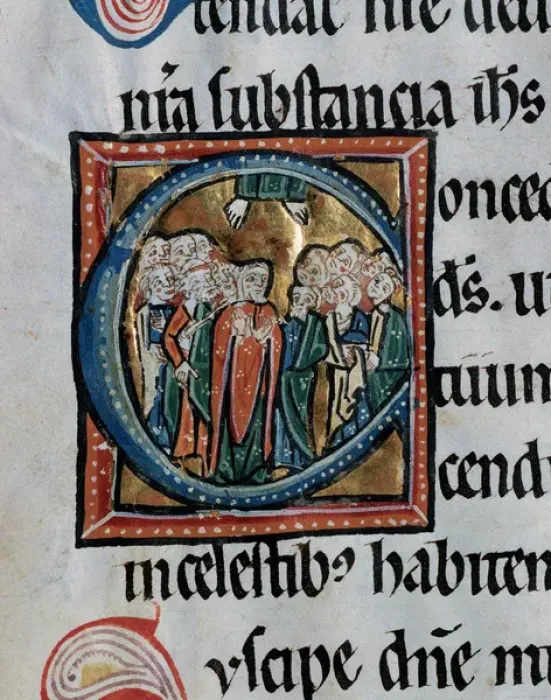 tendat nr̄e
nr̄a substancia ih̄s
Conce
d̄s. u
cend
in celestibꝰ habitem
Suscipe dn̄e mu